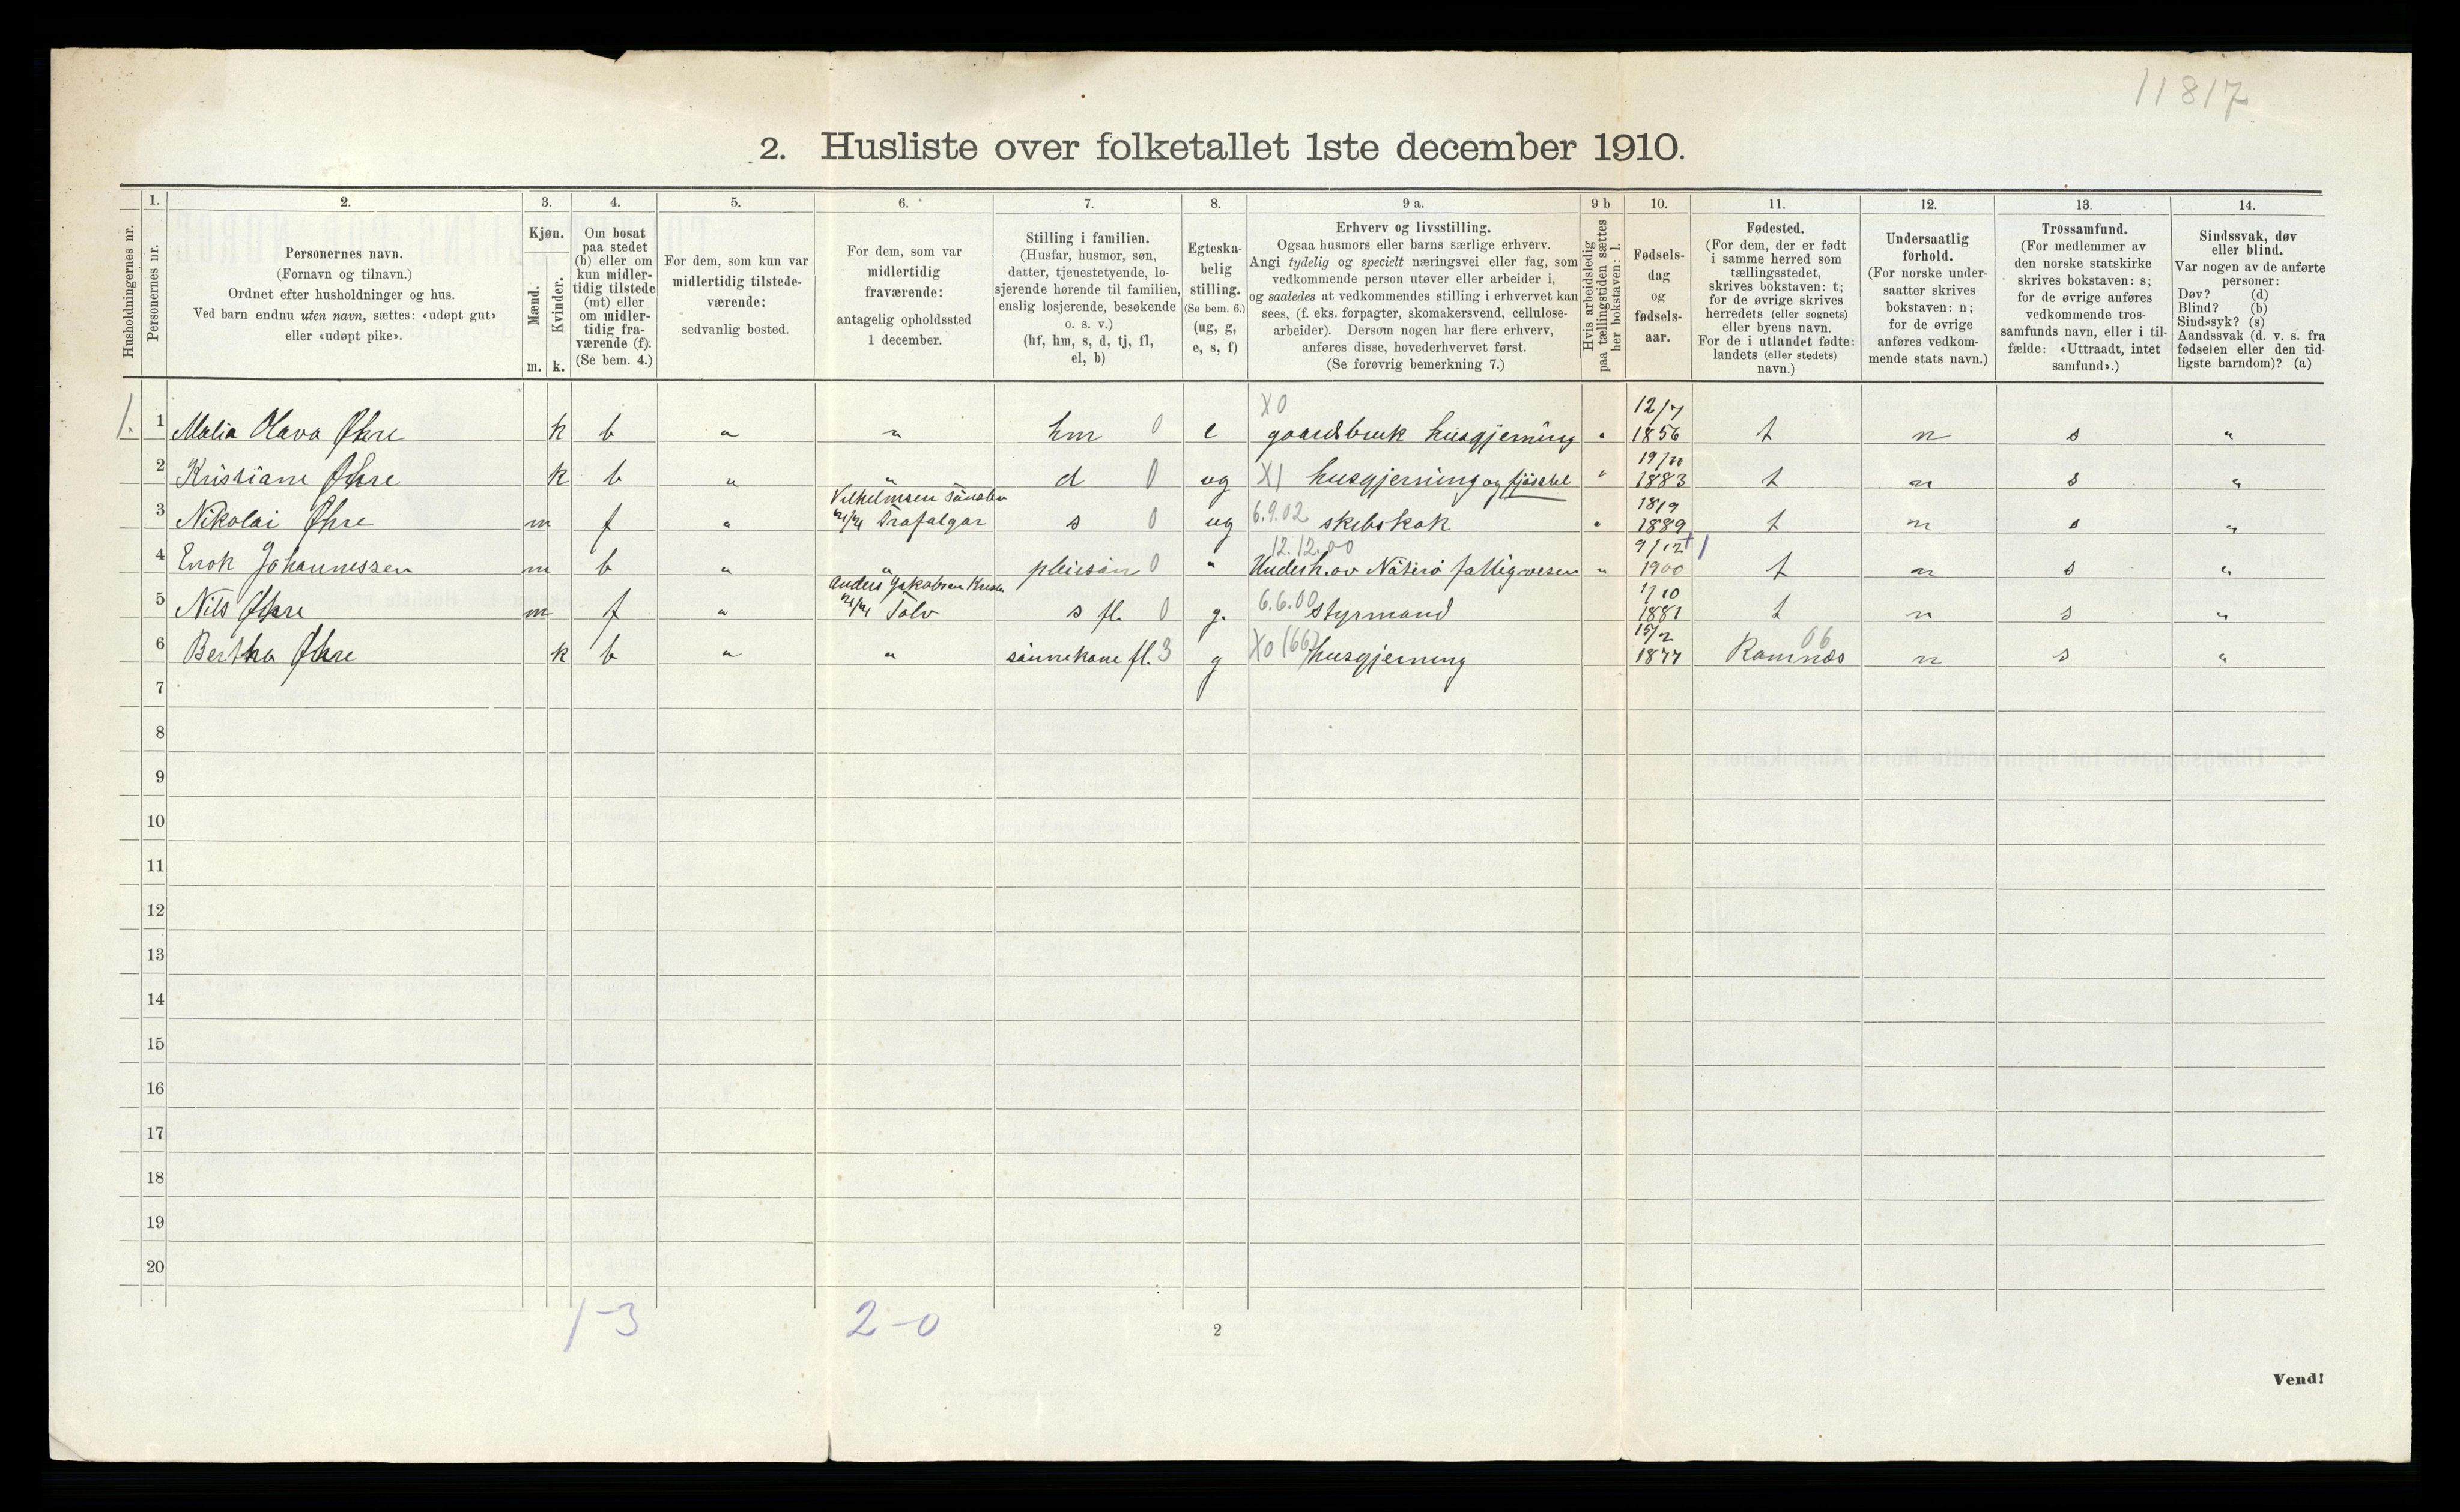 11817
2. Husliste over folketallet 1ste december 1910.
Husholdningernes nr.
1.
Personernes nr.
2.
Personernes navn.
(Fornavn og tilnavn.)
Ordnet efter husholdninger og hus.
Ved barn endnu uten navn, sættes: «udøpt gut»
eller «udøpt pike».
3.
Kjøn.
Mænd.
Kvinder.
m. k.
4.
Om bosat
paa stedet
(b) eller om
kun midler-
tidig tilstede
(mt) eller
om midler-
tidig fra-
værende (f).
(Se bem. 4.)
5.
For dem, som kun var
midlertidig tilstede-
værende:
sedvanlig bosted.
6.
For dem, som var
midlertidig
fraværende:
antagelig opholdssted
1 december.
7.
Stilling i familien.
(Husfar, husmor, søn,
datter, tjenestetyende, lo-
sjerende hørende til familien,
enslig losjerende, besøkende
o. s. v.)
(hf, hm, s, d, tj, fl,
el, b)
8.
Egteska-
belig
stilling.
(Se bem. 6.)
(ug, g,
e, s, f)
9 a.
Erhverv og livsstilling.
Ogsaa husmors eller barns særlige erhverv.
Angi tydelig og specielt næringsvei eller fag, som
vedkommende person utøver eller arbeider i,
og saaledes at vedkommendes stilling i erhvervet kan
sees, (f. eks. forpagter, skomakersvend, cellulose-
arbeider). Dersom nogen har flere erhverv,
anføres disse, hovederhvervet først.
(Se forøvrig bemerkning 7.)
9 b
Hvis arbeidsledig
paa tællingstiden sættes
her bokstaven: l.
10.
Fødsels-
dag
og
fødsels-
aar.
11.
Fødested.
(For dem, der er født
i samme herred som
tællingsstedet,
skrives bokstaven: t;
for de øvrige skrives
herredets (eller sognets)
eller byens navn.
For de i utlandet fødte:
landets (eller stedets)
navn.)
12.
Undersaatlig
forhold.
(For norske under-
saatter skrives
bokstaven: n;
for de øvrige
anføres vedkom-
mende stats navn.)
13.
Trossamfund.
(For medlemmer av
den norske statskirke
skrives bokstaven: s;
for de øvrige anføres
vedkommende tros-
samfunds navn, eller i til-
fælde: «Uttraadt, intet
samfund».)
14.
Sindssvak, døv
eller blind.
Var nogen av de anførte
personer:
Døv? (d)
Blind? (b)
Sindssyk? (s)
Aandssvak (d. v. s. fra
fødselen eller den tid-
ligste barndom)? (a)
X0 12/7
1. 1 Malia Olava Øhre k b " " hm 0 e gaardsbruk husgjerning " 1856 t n s "
19/20
2 Kristiane Øhre k b " " d 0 ug X1 husgjerning og fjösstel " 1883 t n s "
Vilhelmsen Tönsber 18/9
3 Nikolai Øhre m f " Trafalgar s 0 ug 6.9.02 skibskok " 1889 t n s "
12.12.00 9/12
4 Enok Johannessen m b " " pleiesön 0 " Underh. av Nöterö fattigvesen " 1900 t n s "
Anders Jakobsen 1/10
5 Nils Øhre m f " Tolv s fl. 0 g. 6.6.00 styrmand 1881 t n s "
15/2 06
6 Bertha Øhre k b " " sönnekone fl. 3 g X0 (66) husgjerning 1877 Ramnæs n s "
7
8
9
10
11
12
13
14
15
16
17
18
19
20
1-3 2-0
2
Vend!